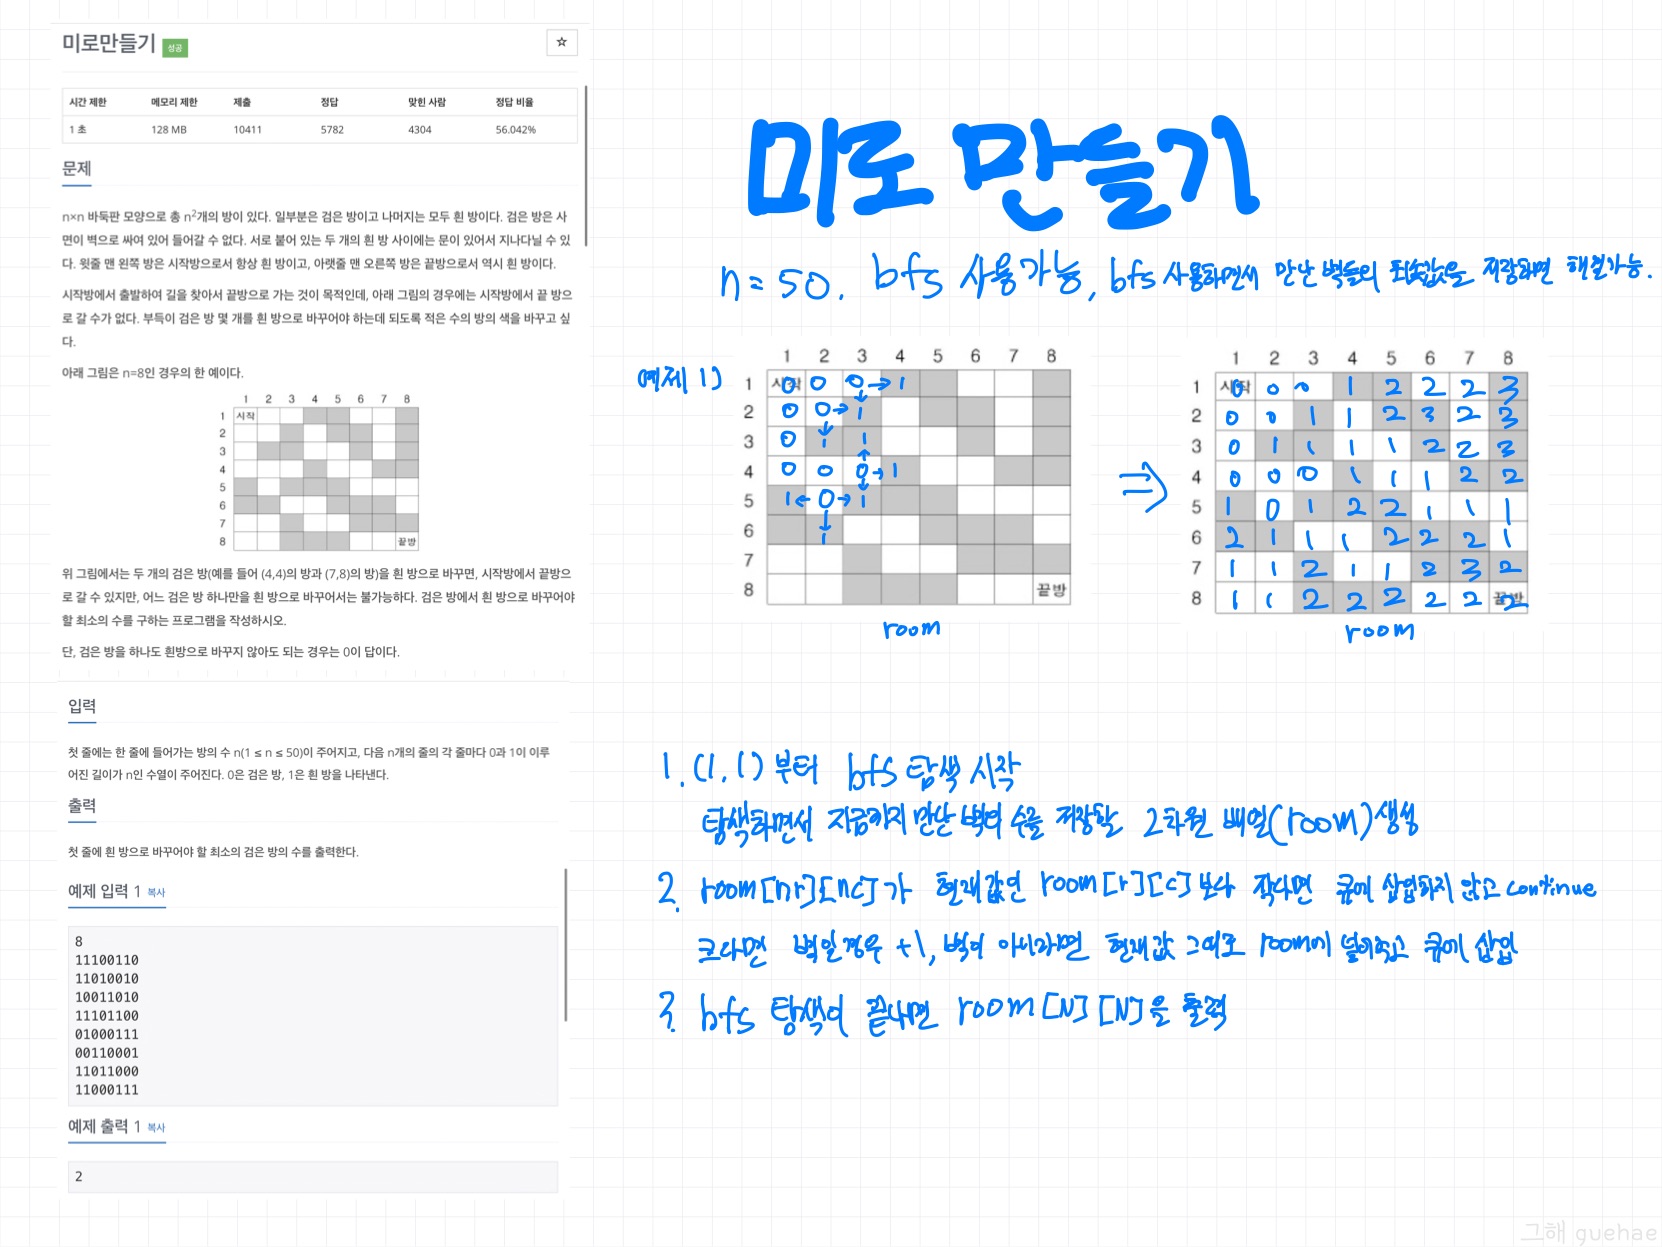 미로만들기 성공
☆
시간 제한 메모리 제한 제출 정답 맞힌 사람 정답 비율
1 초 128 MB 10411 5782 4304 56.042%
문제
n×n 바둑판 모양으로 총 n²개의 방이 있다. 일부분은 검은 방이고 나머지는 모두 흰 방이다. 검은 방은 사
면이 벽으로 싸여 있어 들어갈 수 없다. 서로 붙어 있는 두 개의 흰 방 사이에는 문이 있어서 지나다닐 수 있
다. 윗줄 맨 왼쪽 방은 시작방으로서 항상 흰 방이고, 아랫줄 맨 오른쪽 방은 끝방으로서 역시 흰 방이다.
시작방에서 출발하여 길을 찾아서 끝방으로 가는 것이 목적인데, 아래 그림의 경우에는 시작방에서 끝 방으
로 갈 수가 없다. 부득이 검은 방 몇 개를 흰 방으로 바꾸어야 하는데 되도록 적은 수의 방의 색을 바꾸고 싶
다.
아래 그림은 n=8인 경우의 한 예이다.
1 2 3 4 5 6 7 8
1 시작
2
3
4
5
6
7
8 끝방
위 그림에서는 두 개의 검은 방(예를 들어 (4,4)의 방과 (7,8)의 방)을 흰 방으로 바꾸면, 시작방에서 끝방으
로 갈 수 있지만, 어느 검은 방 하나만을 흰 방으로 바꾸어서는 불가능하다. 검은 방에서 흰 방으로 바꾸어야
할 최소의 수를 구하는 프로그램을 작성하시오.
단, 검은 방을 하나도 흰방으로 바꾸지 않아도 되는 경우는 0이 답이다.
입력
첫 줄에는 한 줄에 들어가는 방의 수 n(1 ≤ n ≤ 50)이 주어지고, 다음 n개의 줄의 각 줄마다 0과 1이 이루
어진 길이가 n인 수열이 주어진다. 0은 검은 방, 1은 흰 방을 나타낸다.
출력
첫 줄에 흰 방으로 바꾸어야 할 최소의 검은 방의 수를 출력한다.
예제 입력 1 복사
8
11100110
11010010
10011010
11101100
01000111
00110001
11011000
11000111
예제 출력 1 복사
2
미로 만들기
n = 50. bfs 사용가능, bfs 사용하면서 만난 벽들의 최솟값을 저장하면 해결가능.
예제 1)
1 2 3 4 5 6 7 8
1 시작 0 0 0 → 1
2 0 0 → 1
3 0 1 1
4 0 0 0 → 1
5 1 ← 0 → 1
6 1
7
8 끝방
room
⇒
1 2 3 4 5 6 7 8
1 시작 0 0 0 1 2 2 2 3
2 0 0 1 1 2 3 2 3
3 0 1 1 1 1 2 2 3
4 0 0 0 1 1 1 2 2
5 1 0 1 2 2 1 1 1
6 2 1 1 1 2 2 2 1
7 1 1 2 1 1 2 3 2
8 1 1 2 2 2 2 2 끝방 2
room
1. (1,1) 부터 bfs 탐색 시작
탐색하면서 지금까지 만난 벽의 수를 저장할 2차원 배열(room) 생성
2. room[nr][nc]가 현재값인 room[r][c]보다 작다면 큐에 삽입하지 않고 continue
크다면 벽일 경우 +1, 벽이 아니라면 현재값 그대로 room에 넣어주고 큐에 삽입
3. bfs 탐색이 끝나면 room[N][N]을 출력
그해 guehae